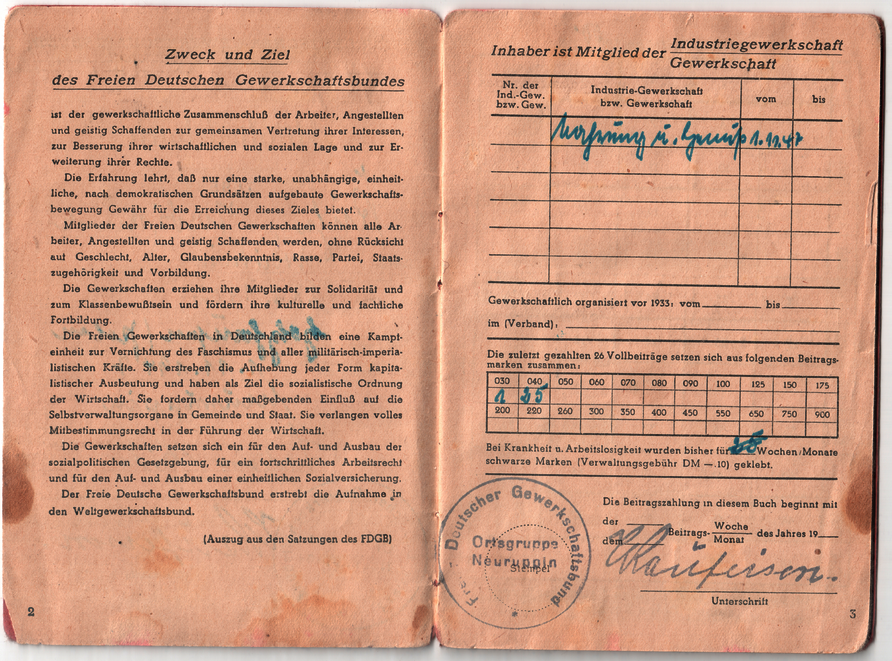 Zweck und Ziel
des Freien Deutschen Gewerkschaftsbundes
ist der gewerkschaftliche Zusammenschluß der Arbeiter, Angestellten
und geistig Schaffenden zur gemeinsamen Vertretung ihrer Interessen,
zur Besserung ihrer wirtschaftlichen und sozialen Lage und zur Er-
weiterung ihrer Rechte.
Die Erfahrung lehrt, daß nur eine starke, unabhängige, einheit-
liche, nach demokratischen Grundsätzen aufgebaute Gewerkschafts-
bewegung Gewähr für die Erreichung dieses Zieles bietet.
Mitglieder der Freien Deutschen Gewerkschaften können alle Ar-
beiter, Angestellten und geistig Schaffenden werden, ohne Rücksicht
auf Geschlecht, Alter, Glaubensbekenntnis, Rasse, Partei, Staats-
zugehörigkeit und Vorbildung.
Die Gewerkschaften erziehen ihre Mitglieder zur Solidarität und
zum Klassenbewußtsein und fördern ihre kulturelle und fachliche
Fortbildung.
Die Freien Gewerkschaften in Deutschland bilden eine Kampf-
einheit zur Vernichtung des Faschismus und aller militärisch-imperia-
listischen Kräfte. Sie erstreben die Aufhebung jeder Form kapita-
listischer Ausbeutung und haben als Ziel die sozialistische Ordnung
der Wirtschaft. Sie fordern daher maßgebenden Einfluß auf die
Selbstverwaltungsorgane in Gemeinde und Staat. Sie verlangen volles
Mitbestimmungsrecht in der Führung der Wirtschaft.
Die Gewerkschaften setzen sich ein für den Auf- und Ausbau der
sozialpolitischen Gesetzgebung, für ein fortschrittliches Arbeitsrecht
und für den Auf- und Ausbau einer einheitlichen Sozialversicherung.
Der Freie Deutsche Gewerkschaftsbund erstrebt die Aufnahme in
den Weltgewerkschaftsbund.
(Auszug aus den Satzungen des FDGB)
2
Inhaber ist Mitglied der Industriegewerkschaft
Gewerkschaft
Nr. der
Ind.-Gew.
bzw. Gew.
Industrie-Gewerkschaft
bzw. Gewerkschaft
vom
bis
Nahrung u. Genuß 1.11.47
Gewerkschaftlich organisiert vor 1933: vom bis
im (Verband):
Die zuletzt gezahlten 26 Vollbeiträge setzen sich aus folgenden Beitrags-
marken zusammen:
030 040 050 060 070 080 090 100 125 150 175
1 25
200 220 260 300 350 400 450 550 650 750 900
Bei Krankheit u. Arbeitslosigkeit wurden bisher für Wochen/Monate
schwarze Marken (Verwaltungsgebühr DM —.10) geklebt.
Die Beitragszahlung in diesem Buch beginnt mit
der Woche
dem Beitrags-Monat des Jahres 19
Freier Deutscher Gewerkschaftsbund
Ortsgruppe
Neuruppin
Stempel
Unterschrift
3